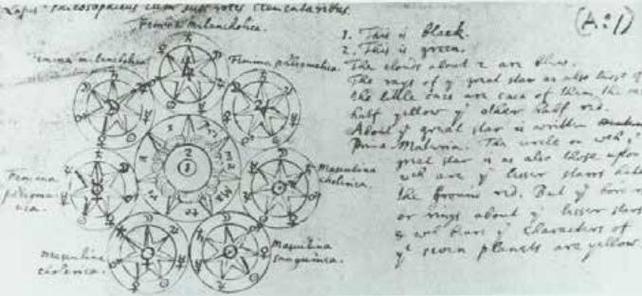 Lapis Philosophicus cum suis rotis elementaribus.
Femina melancholica.
Femina melancholica
Femina phlegmatica
Femina phlegmatica.
Masculina cholerica.
Masculina cholerica.
Masculina sanguinea.
1
2
(A:1)
1. This is black.
2. This is green.
The clouds about 2 are blue.
The rays of yͤ great star as also those of
the little ones are each of them, the one
half yellow yͤ other half red.
About yͤ great star is written
Prima Materia. The circle on wch yͤ
great star is as also those upon
wch are yͤ lesser starrs have
the ground red. But yͤ
or rings about yͤ lesser stars
wch bear yͤ Characters of
yͤ seven planets are yellow